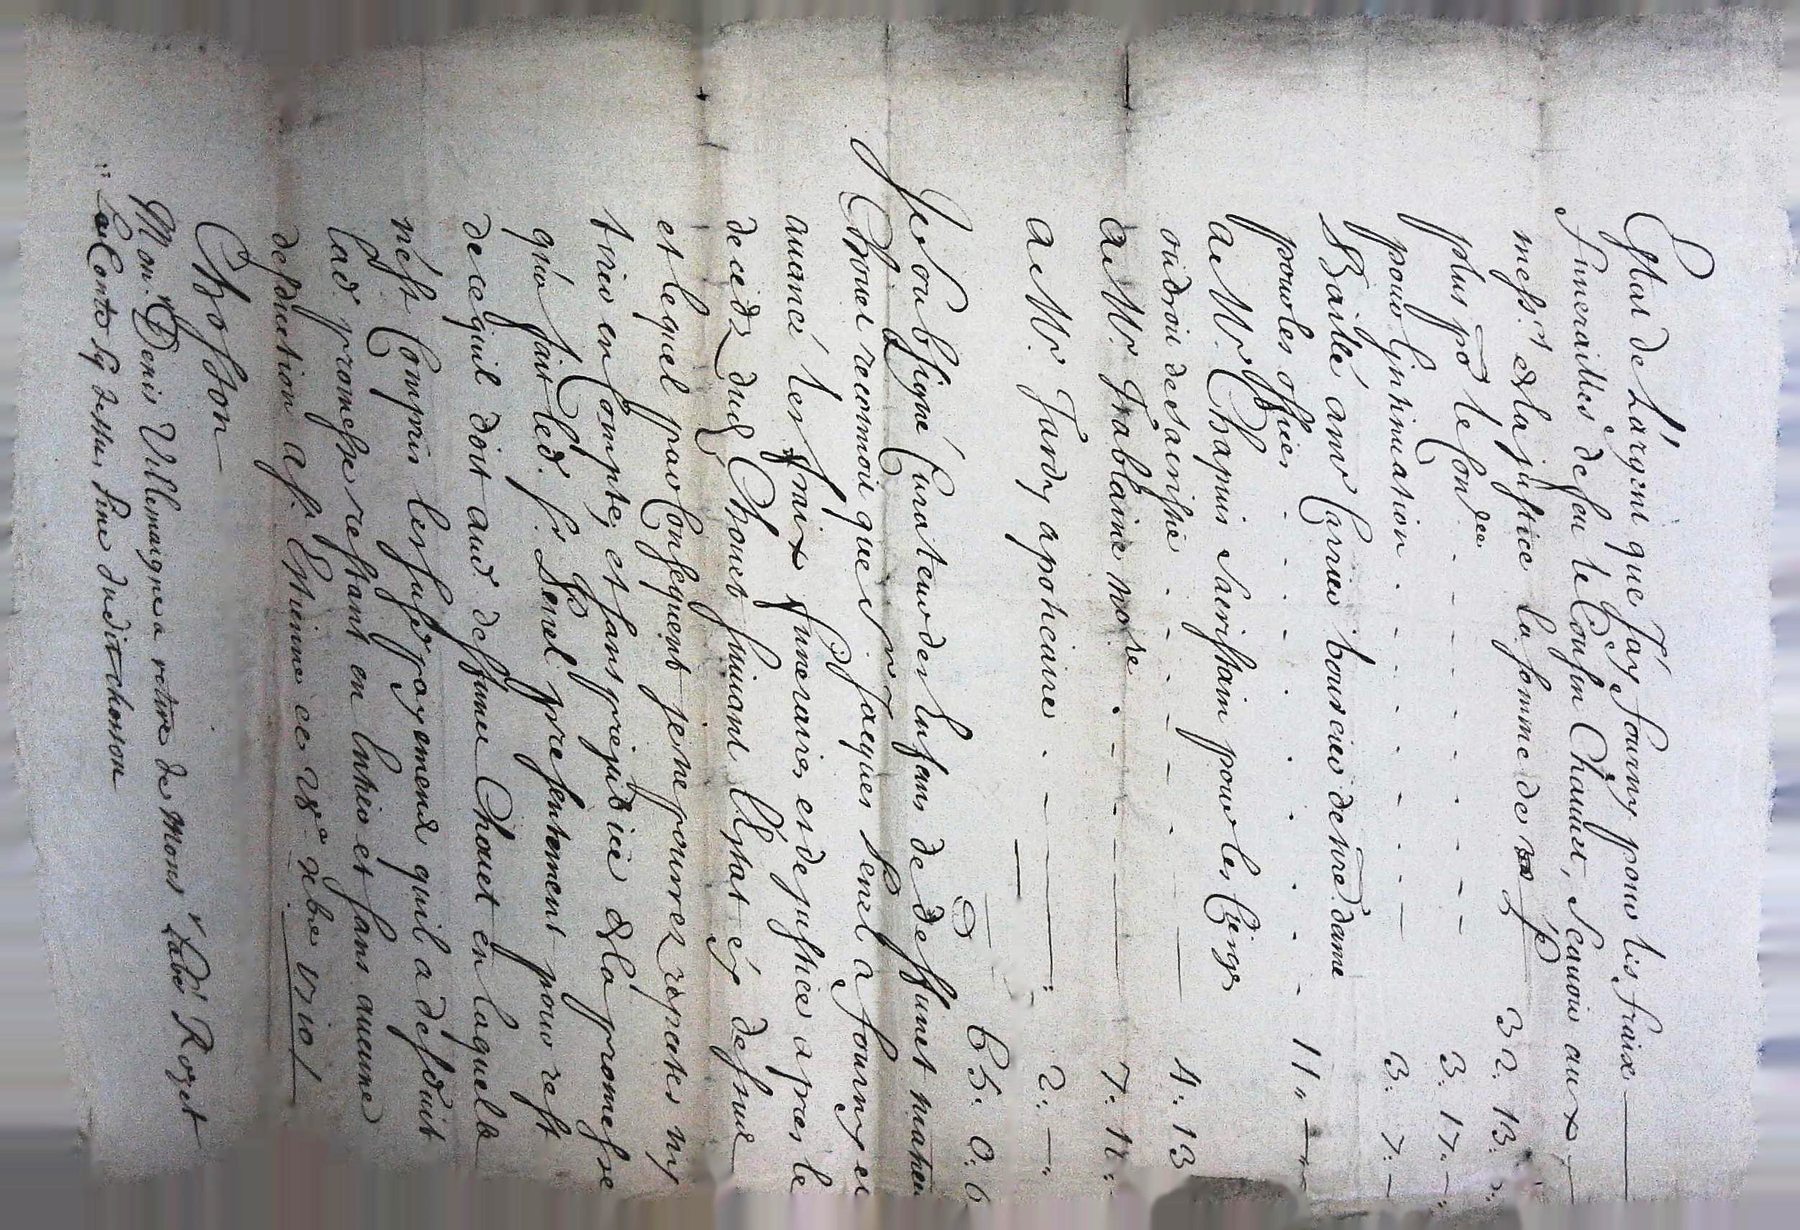 Estat de L'argent que J'ay fourny pour les fraix
funerailles de feu le Cousin Chauet, Scauoir aux
mess.rs de la justice la somme de 32. 13.
plus po.r le Con 3. 17.
pour Linhimation 3. 7.
Baillé a Carrier boursier de nre. dame
pour les offices 11.
a Mr Chapuis Sacristain pour les Cierges
ou droit de sacristie 4. 13
a Mr. Trablaine no.re 7. 12.
a Mr. Tardy apoticaire 2.
65. 0. 6
Je Soubsigné Curateur des Enfans de deffunct mathieu
Chouet reconnoit que sr. Jacques Senel a fourny et
auancé les fraix funeraires et de justice apres le
decedz dud. Chouet suiuant l'Estat cy dessus
et lequel par Consequent je ne pourrez repetes ny
tirer en Compte, et sans prejudice de la promesse
que fait led. Sr. Senel presentement pour rest
de ce quil doit aud. deffunct Chouet en laquelle
n'est Compris les susd. payement quil a desduit
lad. promesse restant en entier et sans aucune
desduction a St. Estienne ce 28e xbre 1701
Chosson
Mon. Denis Villemagne a retire de Mons.r L'abé Rozet
Le Conto sy dessus sine dudit chosson